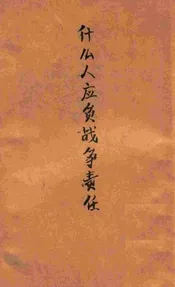 什么人应负战争责任